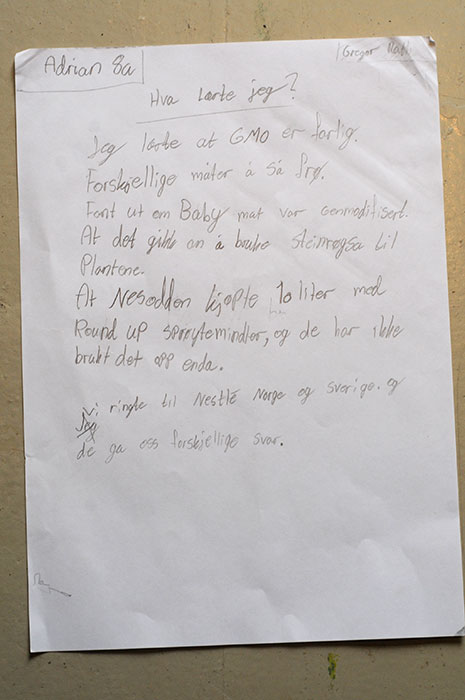 Adrian 8a
Gregor
Hva lærte jeg?
Jeg lærte at GMO er farlig.
Forskjellige måter å så frø.
Font ut om Baby mat var genmodifisert.
At det gikk an å bruke steinrøgsa til
Plantene.
At Nesodden kjøpte 10 liter med
Round up sprøytemidler, og de har ikke
brukt det opp enda.
vi ringte til Nestlé Norge og sverige. og
de ga oss forskjellige svar.